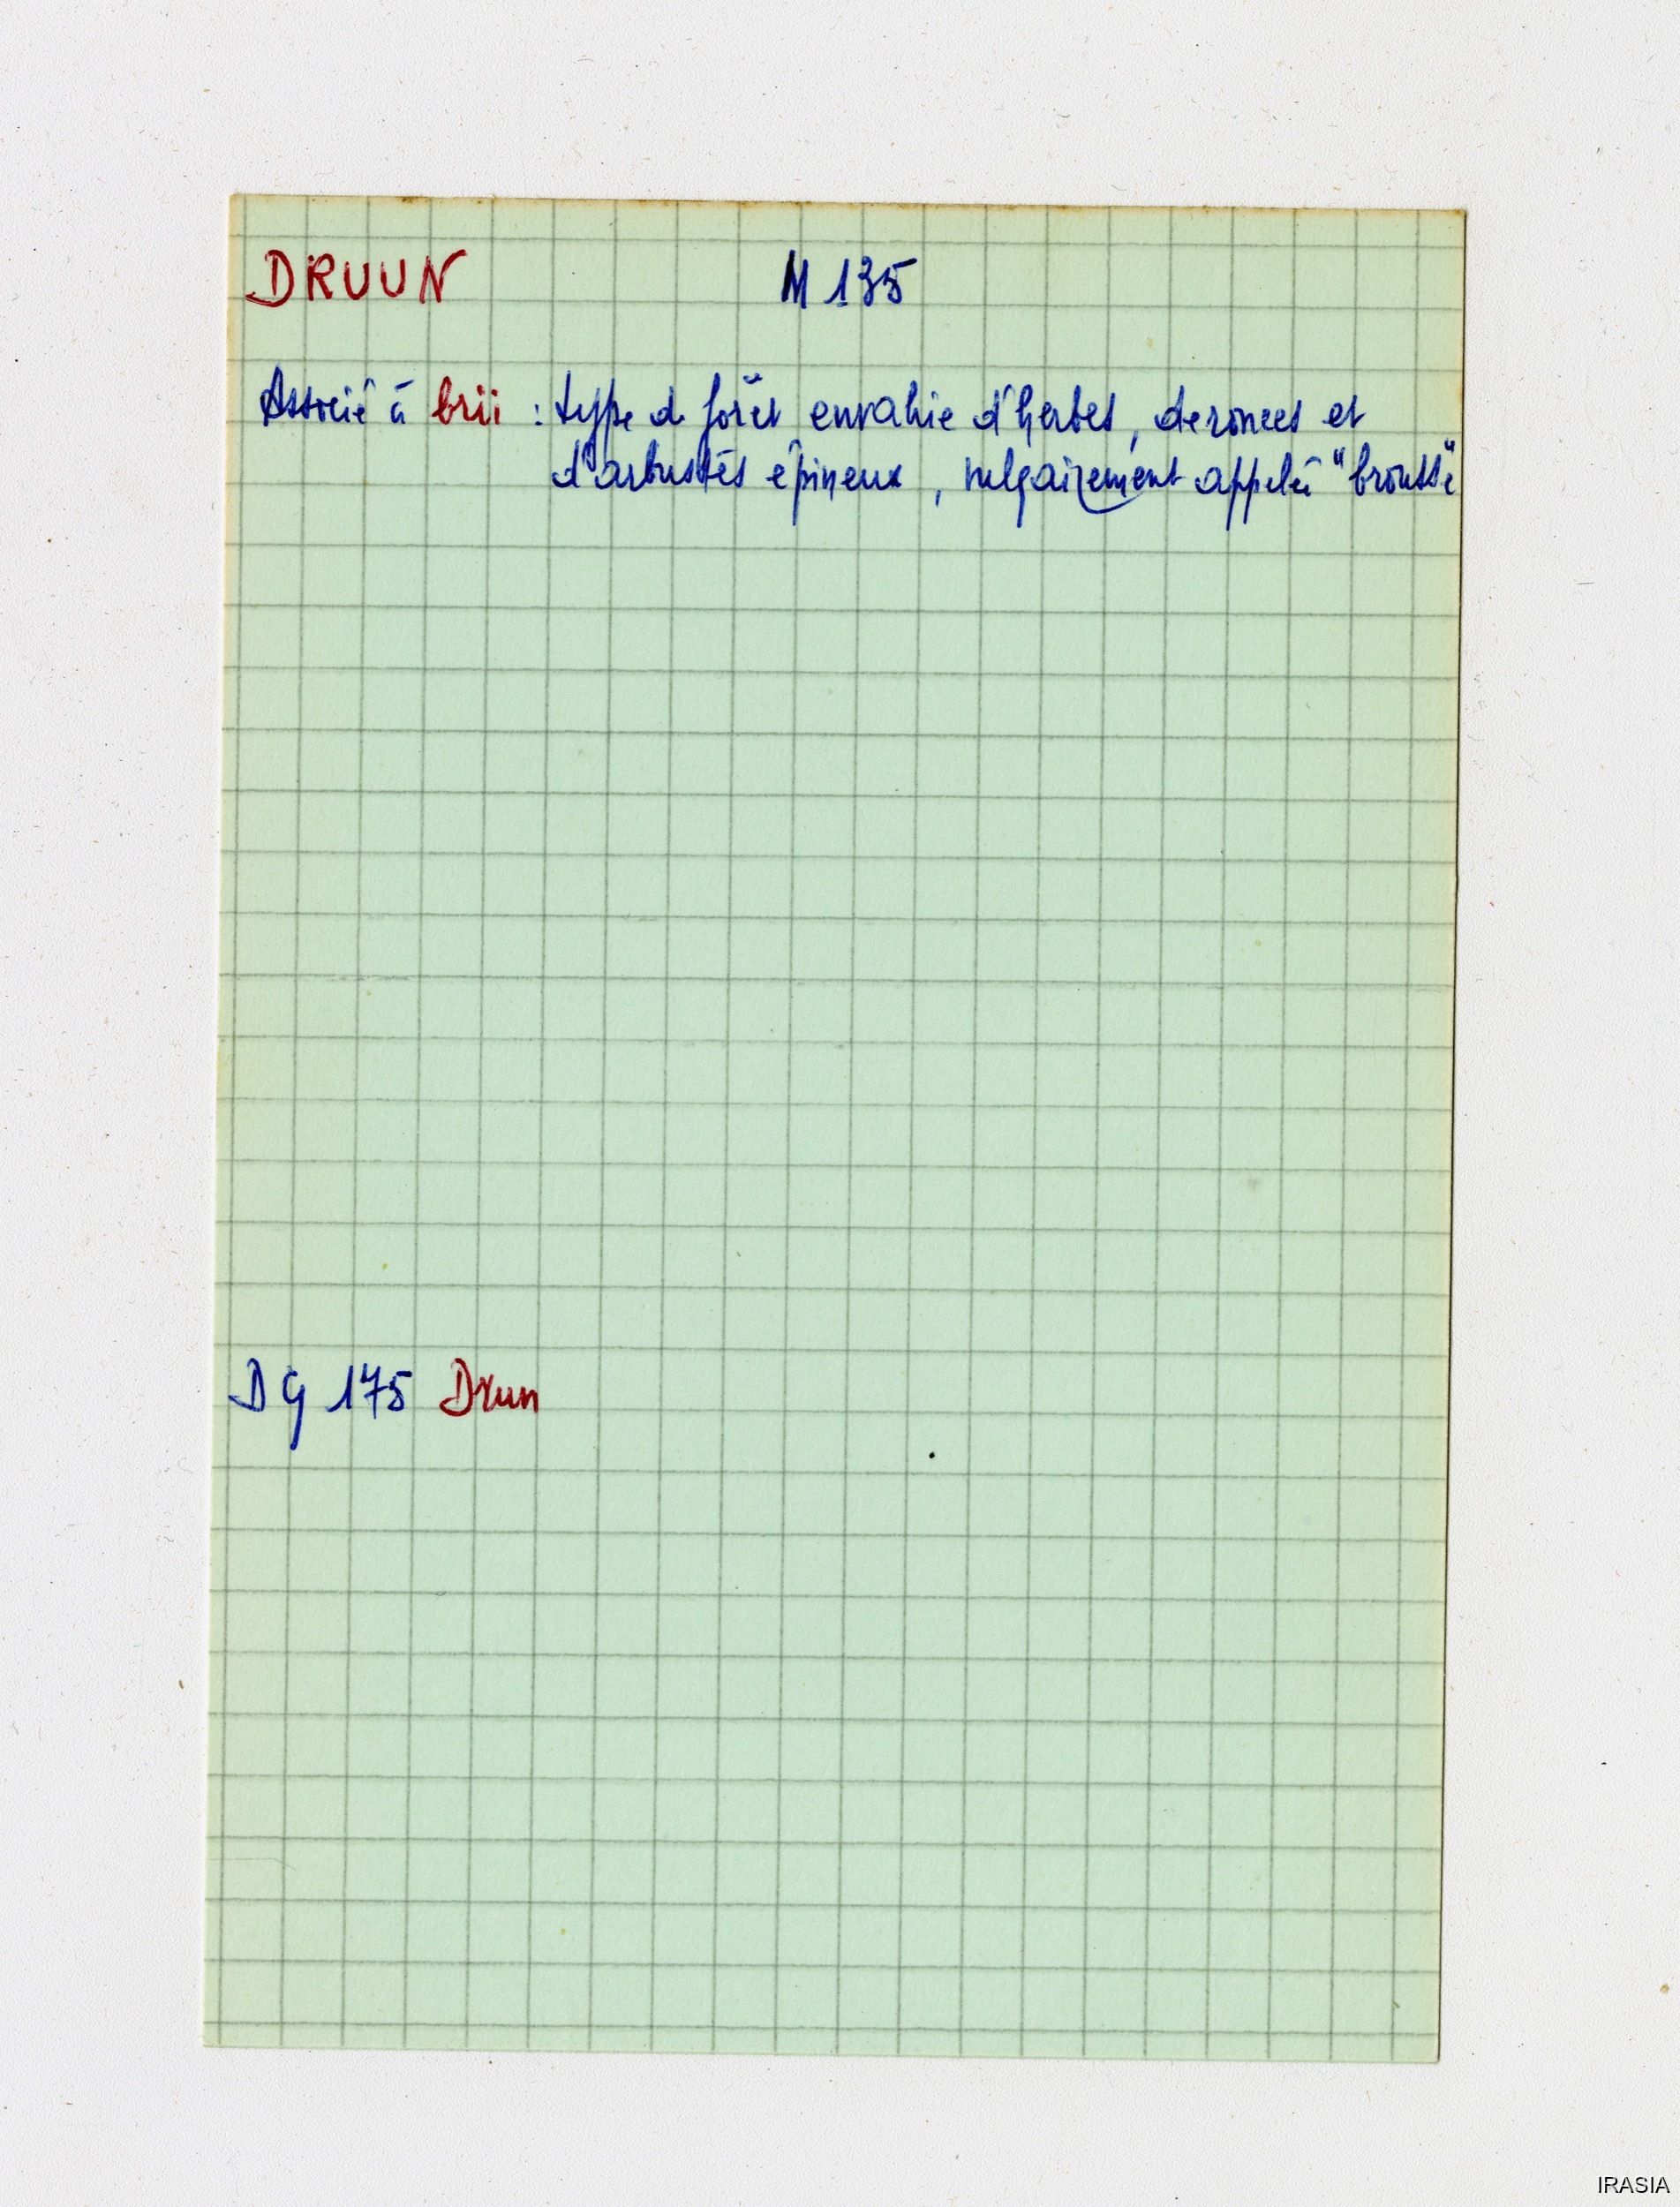 DRUUN M 135
Associé à brii : type de forêt envahie d'herbes, de ronces et
d'arbustes épineux, vulgairement appelée "brousse"
DG 175 Drun
IRASIA